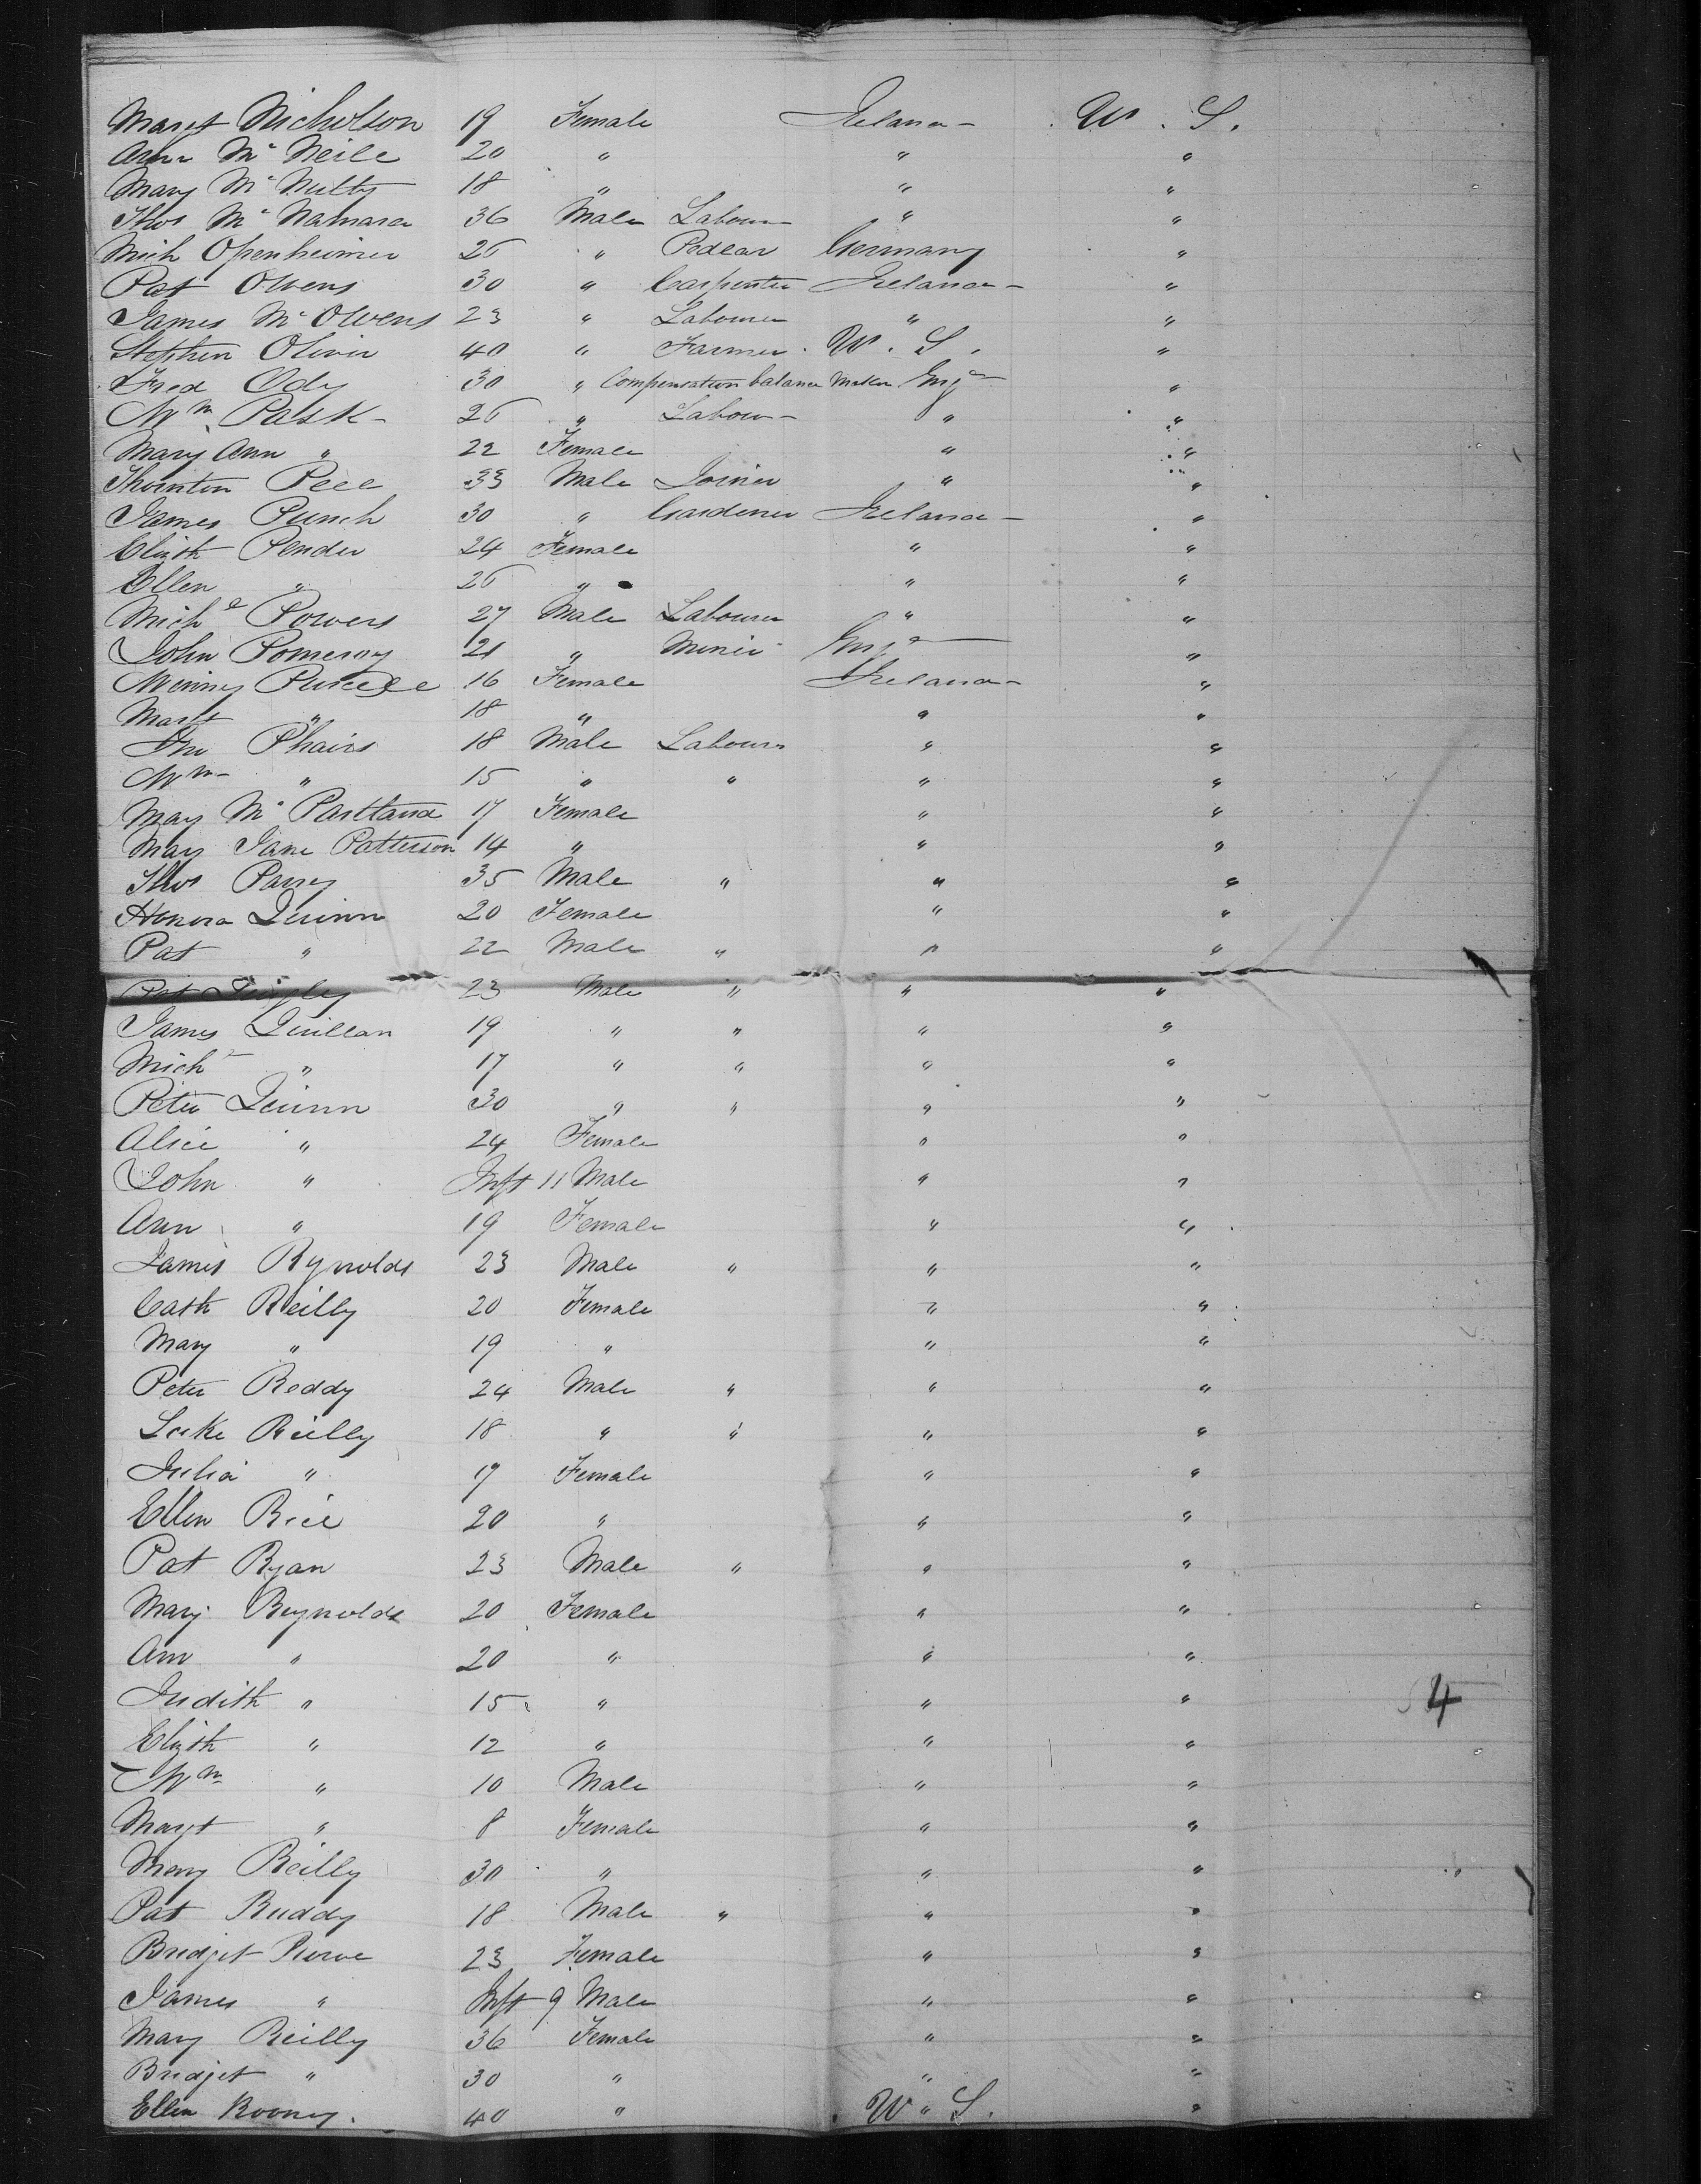 Margt Nicholson 19 Female Ireland U. S.
Ann Mc Neile 20 " " "
Mary Mc Nulty 18 " " "
Thos Mc Namara 36 Male Labourer " "
Mich Openheimer 26 " Pedlar Germany "
Pat Owens 30 " Carpenter Ireland "
James Mc Owens 23 " Labourer " "
Stephen Olivir 40 " Farmer U. S. "
Fred Ody 30 " Compensation balance Maker Engd "
Wm 26 " Labour " "
Mary Ann " 22 Female " "
Thornton Peel 33 Male Joiner " "
James Punch 30 " Gardener Ireland "
Elizth Pender 24 Female " "
Ellen " 26 " " "
Michl Powers 27 Male Labourer " "
John Pomeroy 21 " Miner Engd "
Winney Purcell 16 Female Ireland "
Margt " 18 " " "
Jno Phairs 18 Male Labourer " "
Wm " 15 " " " "
Mary Mc Partland 17 Female " "
Mary Jane Patterson 14 " " "
Thos Parry 35 Male " " "
Honora Quinn 20 Female " "
Pat " 22 Male " " "
Pat 23 Male " " "
James Quillan 19 " " " "
Michl " 17 " " " "
Peter Quinn 30 " " " "
Alice " 24 Female " "
John " Inft 11 Male " "
Ann " 19 Female " "
James Rynolds 23 Male " " "
Cath Reilly 20 Female " "
Mary " 19 " " "
Peter Reddy 24 Male " " "
Luke Reilly 18 " " " "
Julia " 17 Female " "
Ellen Rice 20 " " "
Pat Ryan 23 Male " " "
Mary Reynolds 20 Female " "
Ann " 20 " " "
Judith " 15 " " "
4
Elizth " 12 " " "
Wm " 10 Male " "
Margt " 8 Female " "
Mary Reilly 30 " " "
Pat Ruddy 18 Male " " "
Bridget 23 Female " "
James " Inft 9 Male " "
Mary Reilly 36 Female " "
Bridget " 30 " " "
Ellen Rooney. 40 " U. S. "